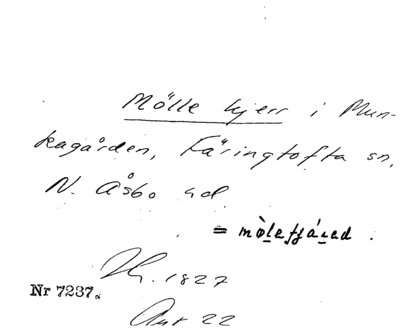 Mölle kjerr i Mun-
kagården, Färingtofta sn,
N. Åsbo hd.
= mòlefjáred.
1827
Nr 7237.
22